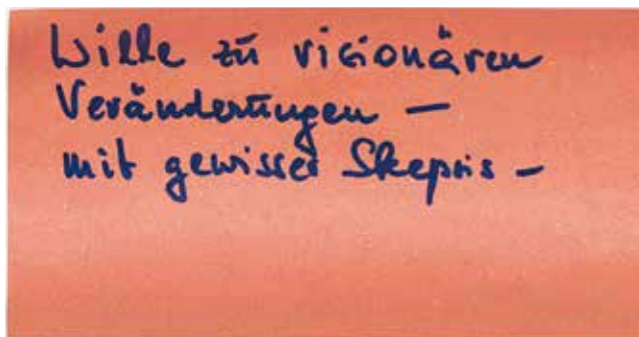 Wille zu visionären
Veränderungen –
mit gewisser Skepsis –